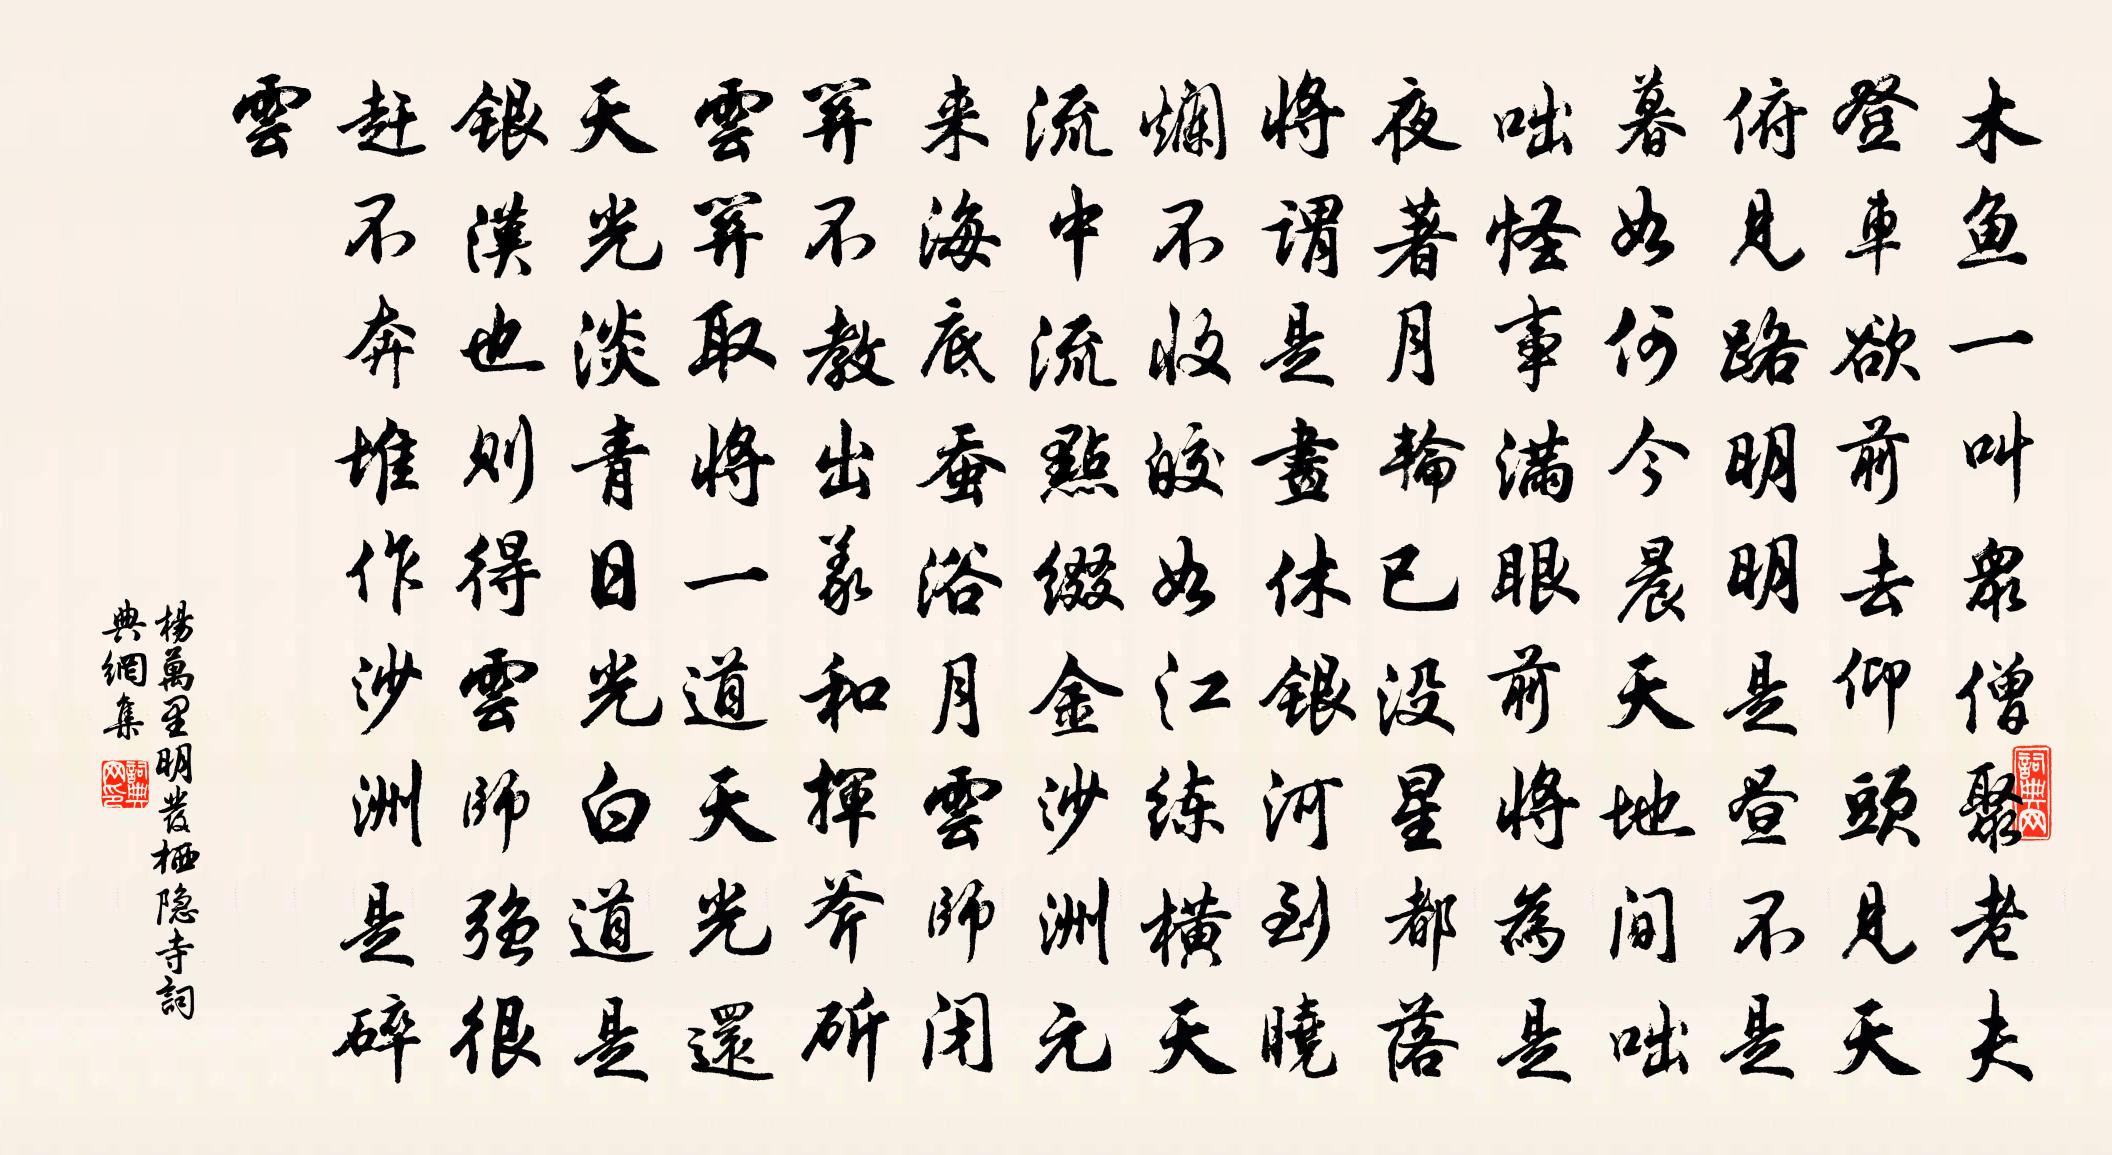 木鱼一叫眾僧聚老夫
登車欲前去仰頭見天
俯見路明明是昼不是
暮如何今晨天地间咄
咄怪事滿眼前將為是
夜著月輪已没星都落
將謂是晝休銀河到曉
爛不收皎如江练橫天
流中流點綴金沙洲元
来海底蚕浴月雲師闭
關不教出羲和揮斧斫
雲關取將一道天光還
天光淡青日光白道是
銀漢也則得雲師強很
赶不奔堆作沙洲是碎
雲
楊萬里明發栖隐寺詞
典網集
詞典网
詞典网印